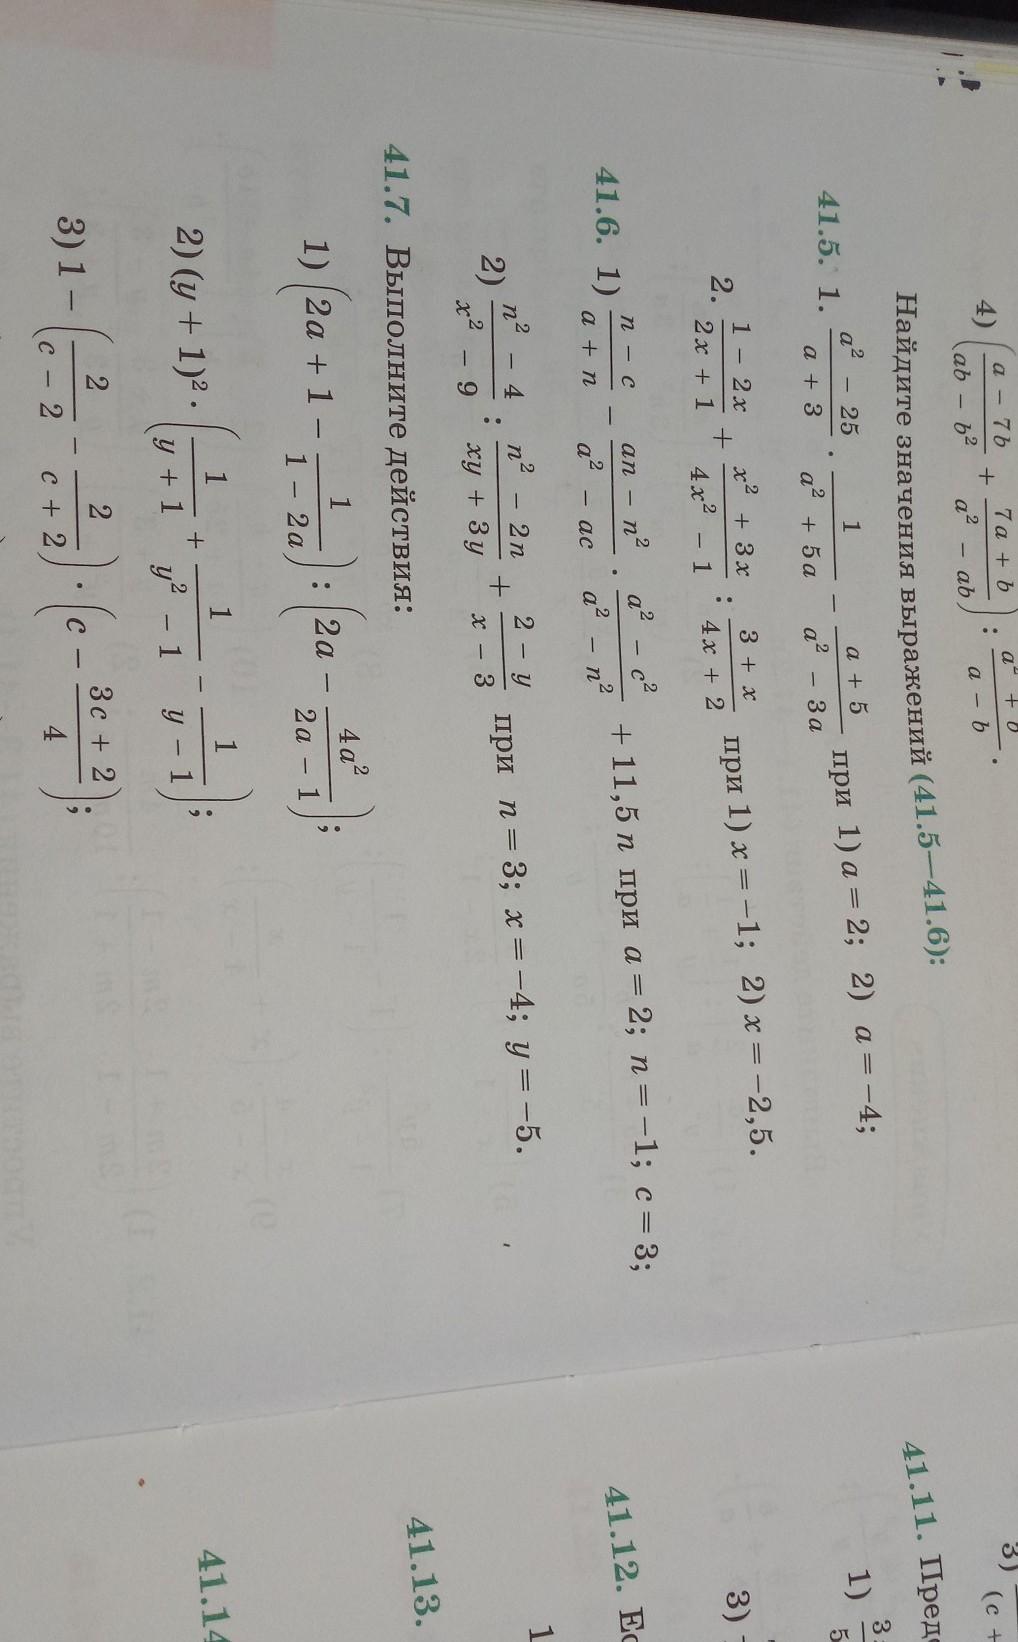 4) ((a − 7b)/(ab − b²) + (7a + b)/(a² − ab)) : (a² + b)/(a − b).
Найдите значения выражений (41.5—41.6):
41.5. 1. (a² − 25)/(a + 3) · 1/(a² + 5a) − (a + 5)/(a² − 3a) при 1) a = 2; 2) a = −4;
2. (1 − 2x)/(2x + 1) + (x² + 3x)/(4x² − 1) : (3 + x)/(4x + 2) при 1) x = −1; 2) x = −2,5.
41.6. 1) (n − c)/(a + n) − (an − n²)/(a² − ac) · (a² − c²)/(a² − n²) + 11,5n при a = 2; n = −1; c = 3;
2) (n² − 4)/(x² − 9) : (n² − 2n)/(xy + 3y) + (2 − y)/(x − 3) при n = 3; x = −4; y = −5.
41.7. Выполните действия:
1) (2a + 1 − 1/(1 − 2a)) : (2a − 4a²/(2a − 1));
2) (y + 1)² · (1/(y + 1) + 1/(y² − 1) − 1/(y − 1));
3) 1 − (2/(c − 2) − 2/(c + 2)) · (c − (3c + 2)/4);
3)
(c +
41.11. Пред
1) 3/5
3)
41.12. Ес
1
41.13.
41.14